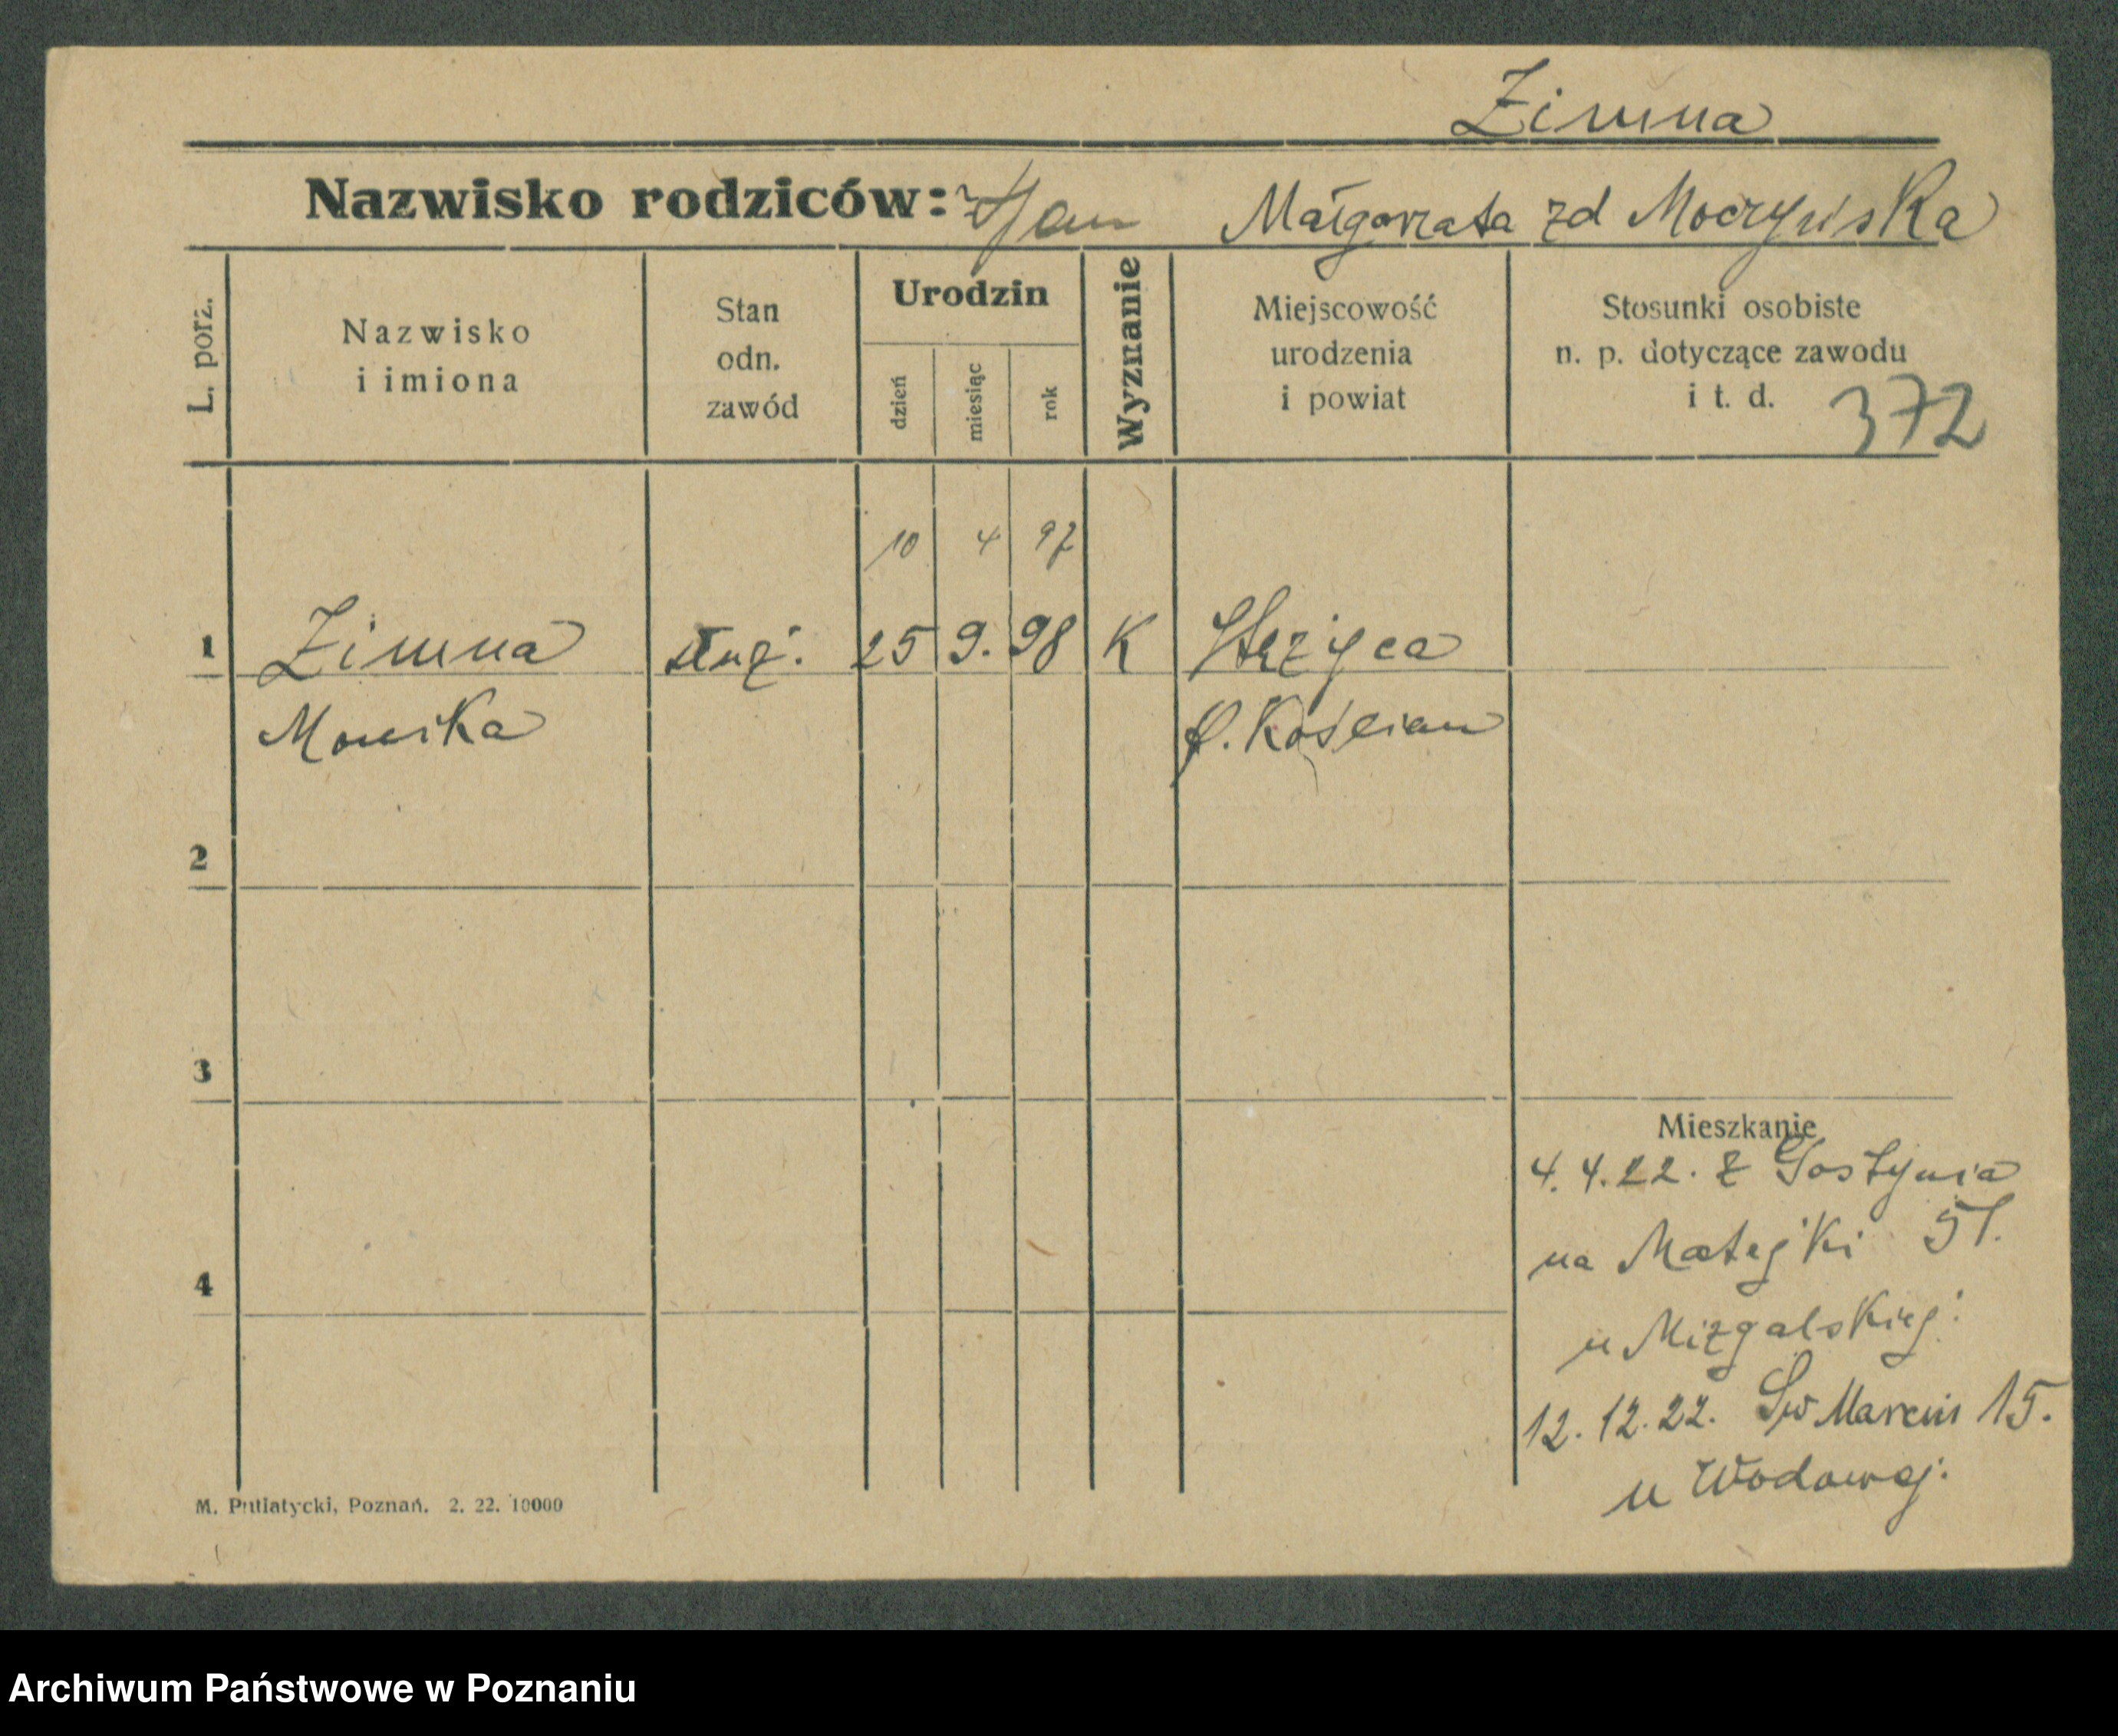 Zimna
Nazwisko rodziców: Jan Małgorzata zd Moczyńska
L. porz.
Nazwisko
i imiona
Stan
odn.
zawód
Urodzin
dzień
miesiąc
rok
Wyznanie
Miejscowość
urodzenia
i powiat
Stosunki osobiste
n. p. dotyczące zawodu
i t. d.
372
10 4 97
1 Zimna służ. 25 9. 98 K Stężyca
Monika p. Kościan
2
3
Mieszkanie
4.4.22. z Gostynia
na Matejki 51.
4
u Mizgalskiej:
12.12.22. Św Marcin 15.
u Wodowej.
M. Putiatycki, Poznań. 2. 22. 10000
Archiwum Państwowe w Poznaniu